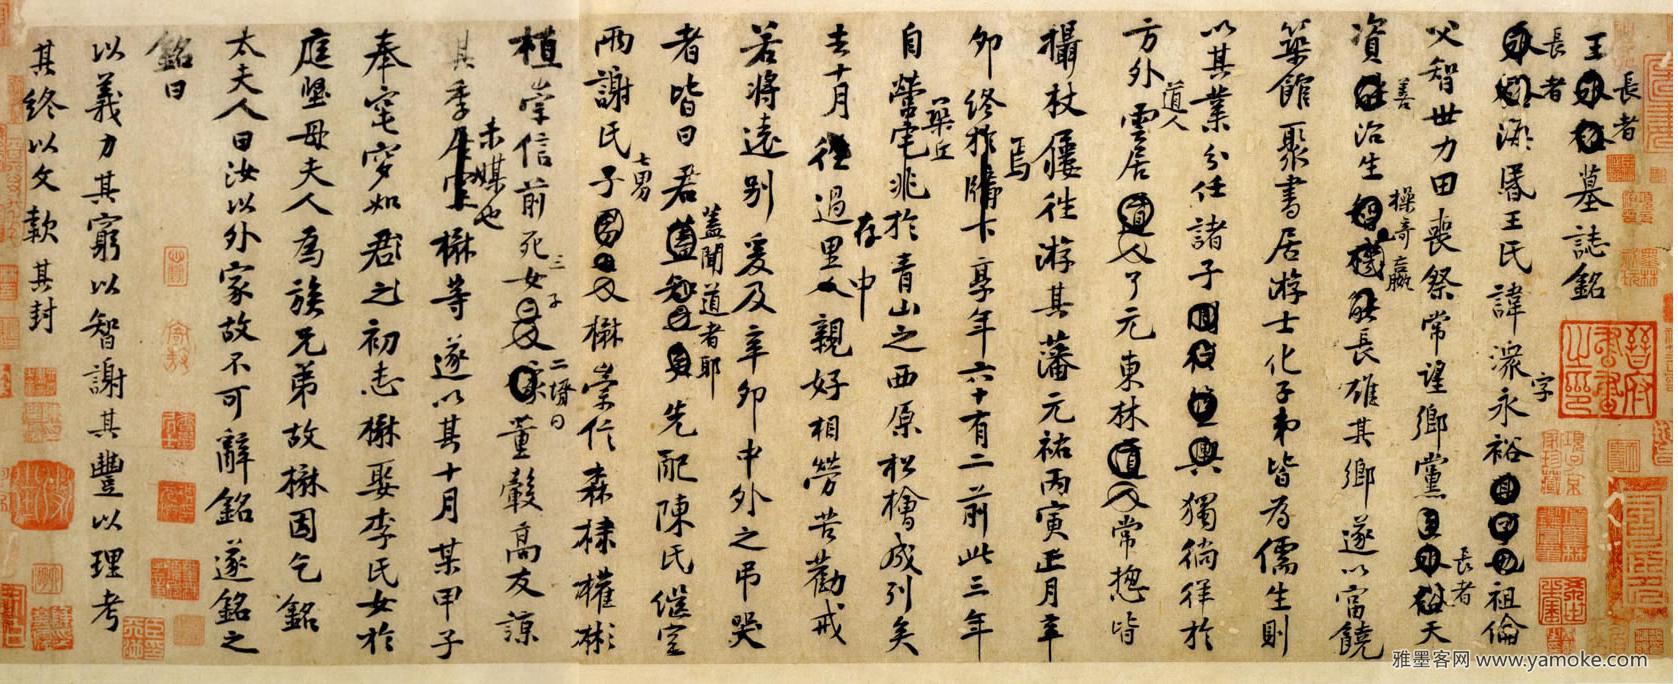 王長者墓誌銘
長者
瀕暑王氏諱潨字永裕祖倫
父智世力田喪祭常望鄉黨長者天
資善治生操奇贏長雄其鄉遂以富饒
築館聚書居游士化子弟皆為儒生則
以其業分任諸子獨徜徉於
方外道人雲居了元東林常揔皆
攝杖屨往游其藩元祐丙寅正月辛
卯終於牖下焉享年六十有二前此三年
自營宅兆築丘於青山之西原松檜成列矣
去十月過里中存親好相勞苦勸戒
若將遠別爰及辛卯中外之弔哭
者皆曰君蓋聞道者耶先配陳氏繼室
兩謝氏七男子楙崇信森棣權彬
植崇信前死女三子二壻曰董毅高友諒
其季未媒也楙等遂以其十月某甲子
奉窀穸如君之初志楙娶李氏女於
庭堅母夫人為族兄弟故楙因乞銘
太夫人曰汝以外家故不可辭銘遂銘之
銘曰
以義力其窮以智謝其豐以理考
其終以文款其封
雅墨客网 www.yamoke.com